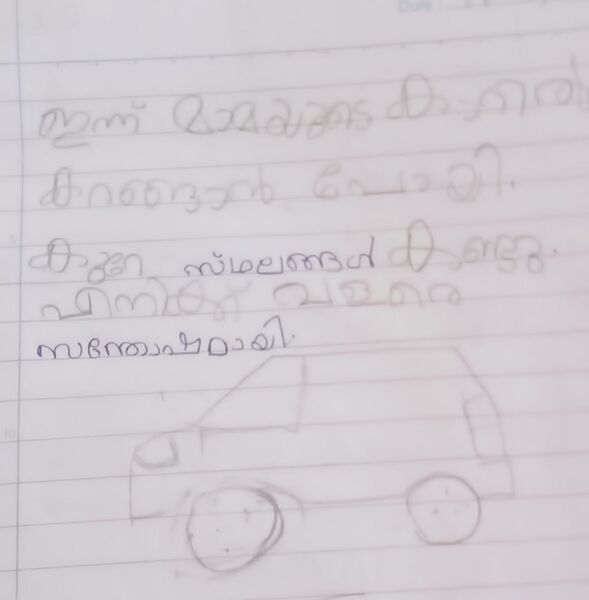 ഇന്ന് മാമയുടെ കാറിൽ
കറങ്ങാൻ പോയി.
കുറേ സ്ഥലങ്ങൾ കണ്ടു.
എനിക്ക് വളരെ
സന്തോഷമായി.